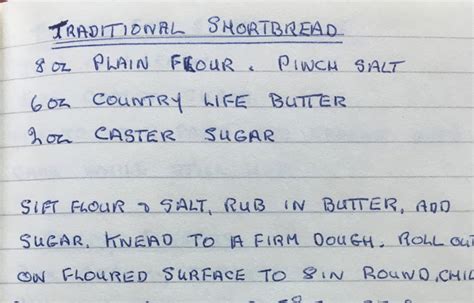 TRADITIONAL SHORTBREAD
8 oz PLAIN FLOUR. PINCH SALT
6 oz COUNTRY LIFE BUTTER
2 oz CASTER SUGAR
SIFT FLOUR & SALT, RUB IN BUTTER, ADD
SUGAR. KNEAD TO A FIRM DOUGH. ROLL OUT
ON FLOURED SURFACE TO 8 IN ROUND, CHIL